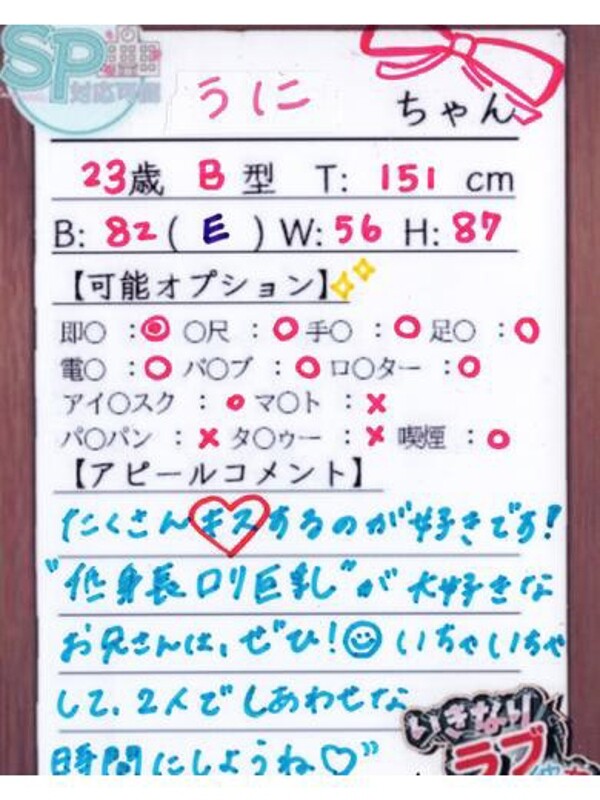 SP
対応可能
うに ちゃん
23歳 B 型 T: 151 cm
B: 82 ( E ) W: 56 H: 87
【可能オプション】
即〇 : ◎ 〇尺 : ○ 手〇 : ○ 足〇 : ○
電〇 : ○ バ〇ブ : ○ ロ〇ター : ○
アイ〇スク : ○ マ〇ト : ×
パ〇パン : × タ〇ゥー : × 喫煙 : ○
【アピールコメント】
たくさんキスするのが好きです!
"低身長ロリ巨乳"が大好きな
お兄さんは、ぜひ!☺いちゃいちゃ
して、2人でしあわせな
時間にしようね♡"
いきなり
ラブ